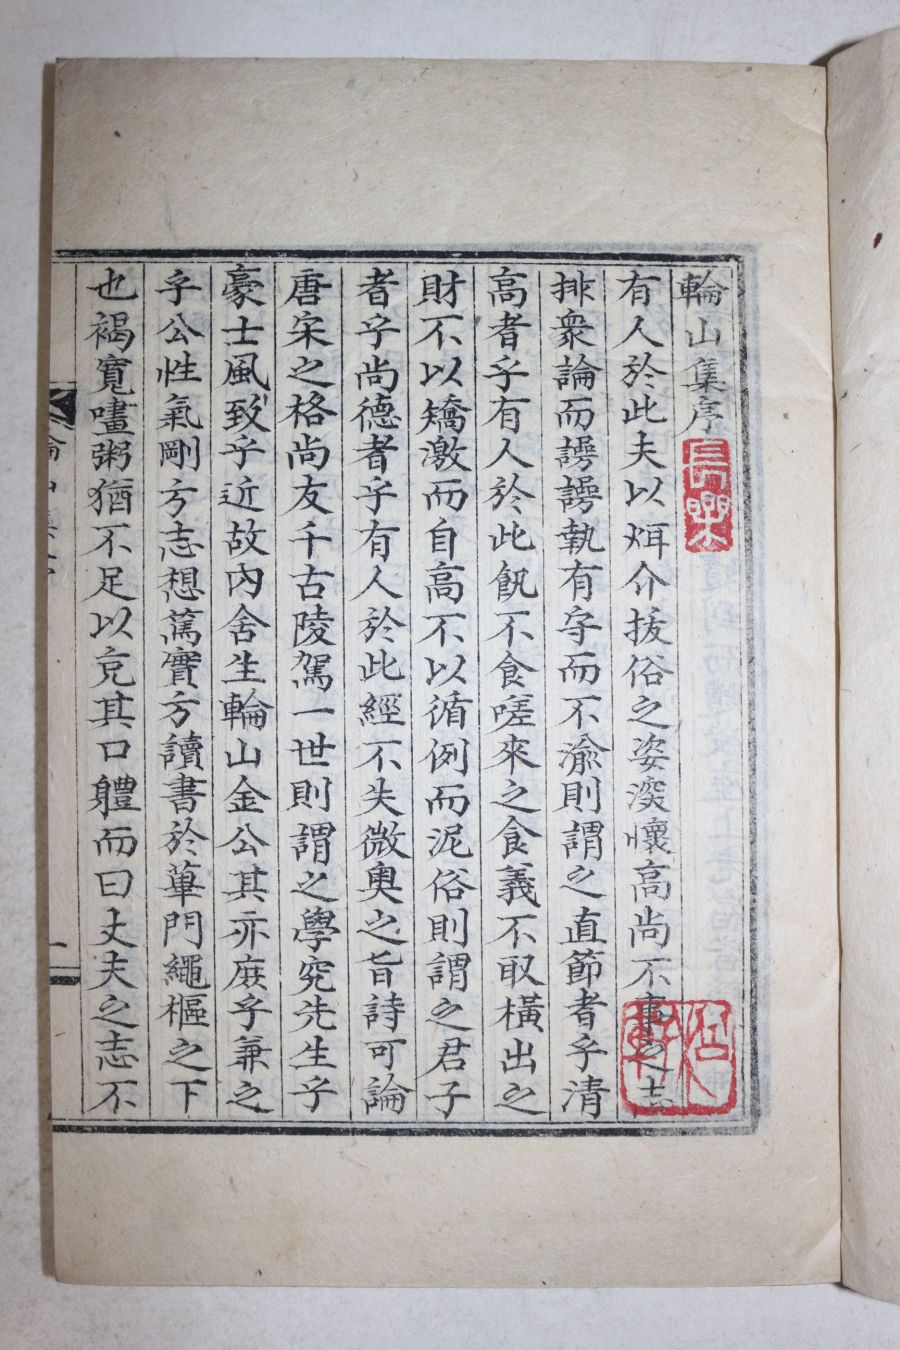 輪山集序
長樂
有人於此夫以烱介拔俗之姿深懷高尚不事之志
排衆論而諤諤執有守而不渝則謂之直節者乎清
高者乎有人於此飢不食嗟來之食義不取橫出之
財不以矯激而自高不以循例而泥俗則謂之君子
者乎尚德者乎有人於此經不失微奧之旨詩可論
唐宋之格尚友千古陵駕一世則謂之學究先生乎
豪士風致乎近故內舍生輪山金公其亦庶乎兼之
乎公性氣剛方志想篤實方讀書於蓽門繩樞之下
也褐寬嚍粥猶不足以充其口軆而曰丈夫之志不
輪山集序
一